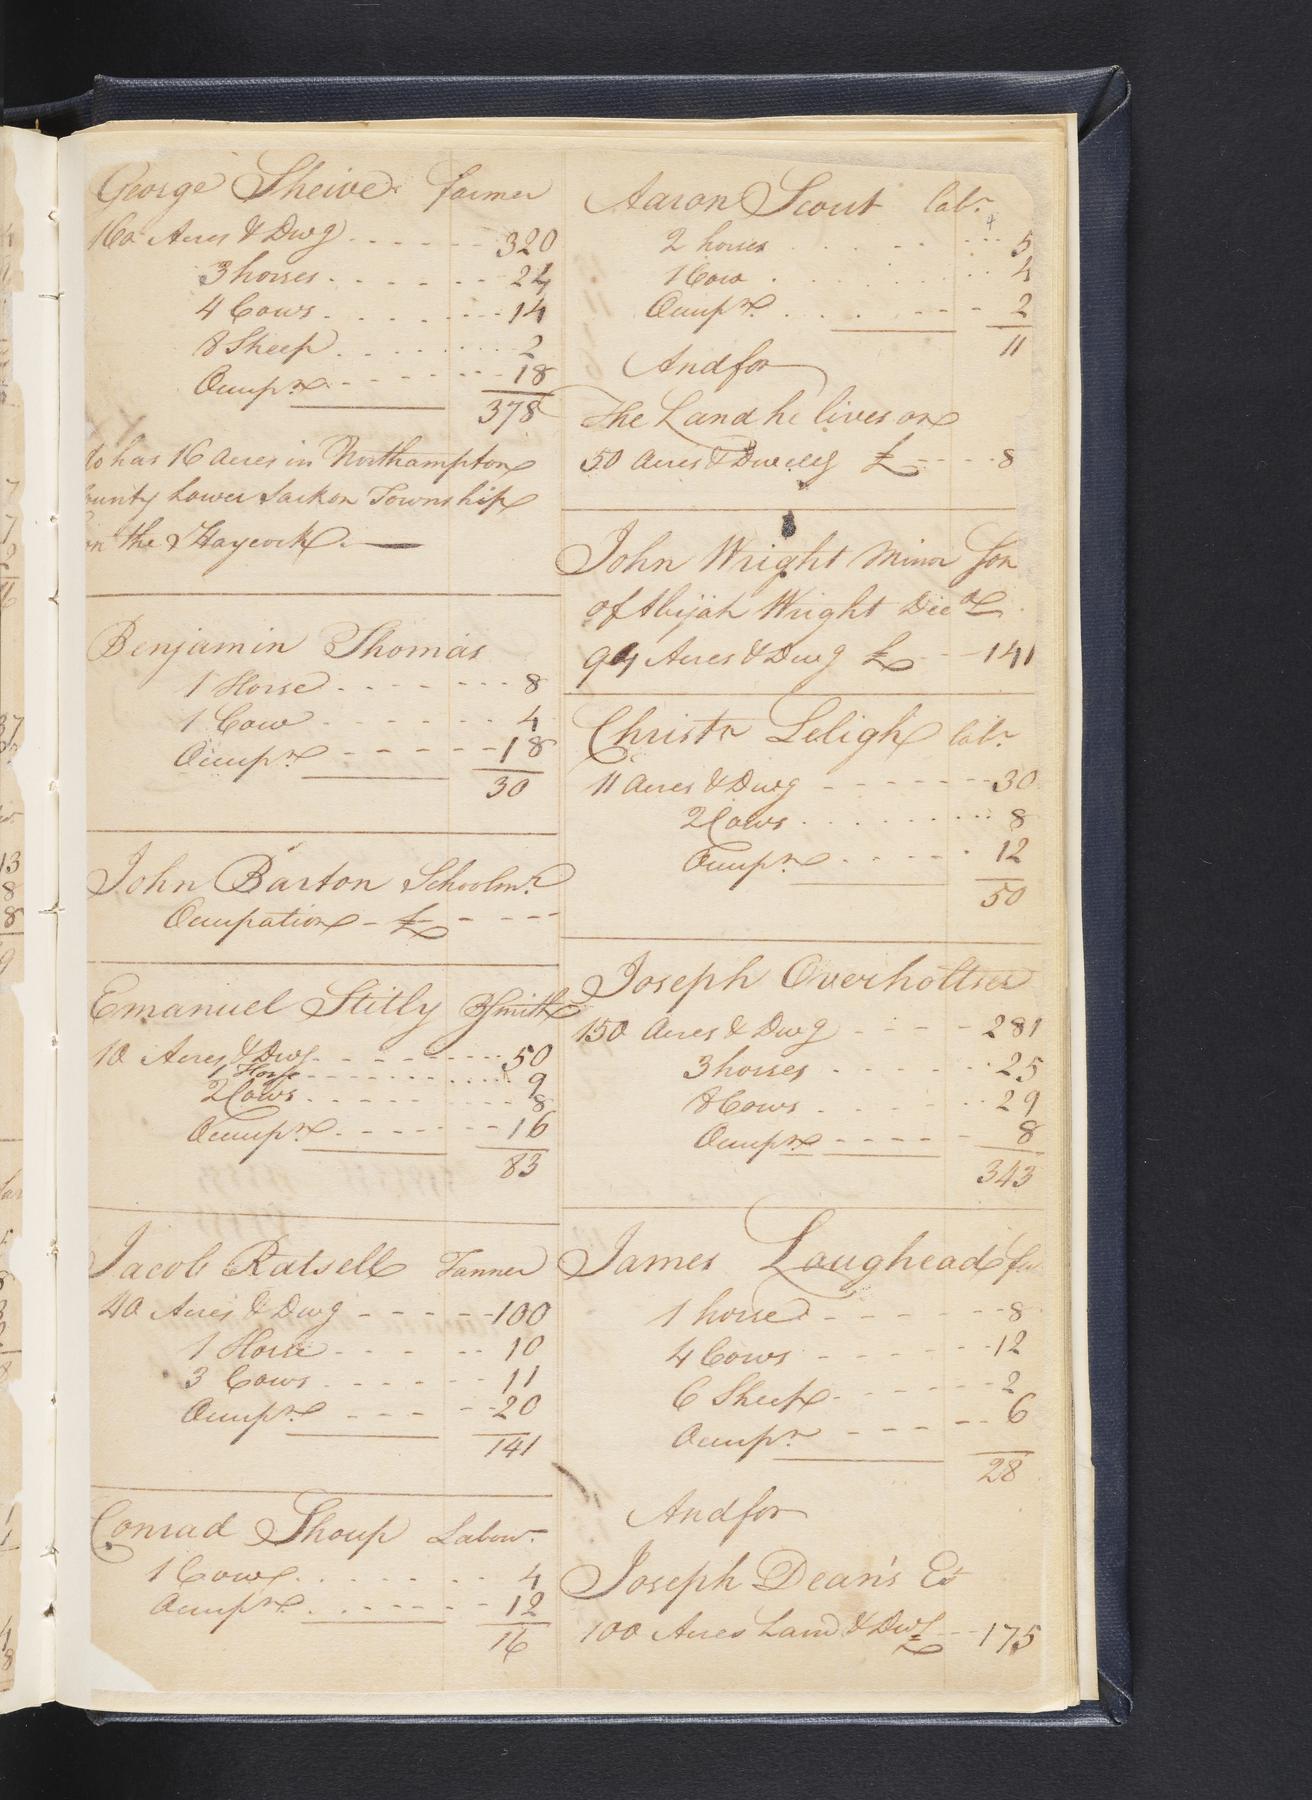 George Sheive farmer
160 Acres & Dwg 320
3 horses 24
4 Cows 14
8 Sheep 2
Occupn 18
378
do has 16 acres in Northampton
County Lower Sackon Township
on the Haycock
Benjamin Thomas
1 Horse 8
1 Cow 4
Occupn 18
30
John Barton Schoolmr
Occupation - £
Emanuel Stitly BSmith
10 Acres & Dwg 50
1 Horse 9
2 Cows 8
Occupn 16
83
Jacob Ratsell Tanner
40 Acres & Dwg 100
1 Horse 10
3 Cows 11
Occupn 20
141
Conrad Shoup Labour
1 Cow 4
Occupn 12
16
Aaron Scout labr
2 horses 5
1 Cow 4
Occupn 2
11
And for
The Land he lives on
50 acres & Dwellg £ 8
John Wright Minor Son
of Abijah Wright Decd
94 Acres & Dwg £ 141
Christr Leligh labr
11 acres & Dwg 30
2 Cows 8
Occupn 12
50
Joseph Overholtser
150 acres & Dwg 281
3 horses 25
8 Cows 29
Occupn 8
343
James Loughead fr
1 horse 8
4 Cows 12
6 Sheep 2
Occupn 6
28
And for
Joseph Dean's Et
100 Acres Land & Dwg £ 175